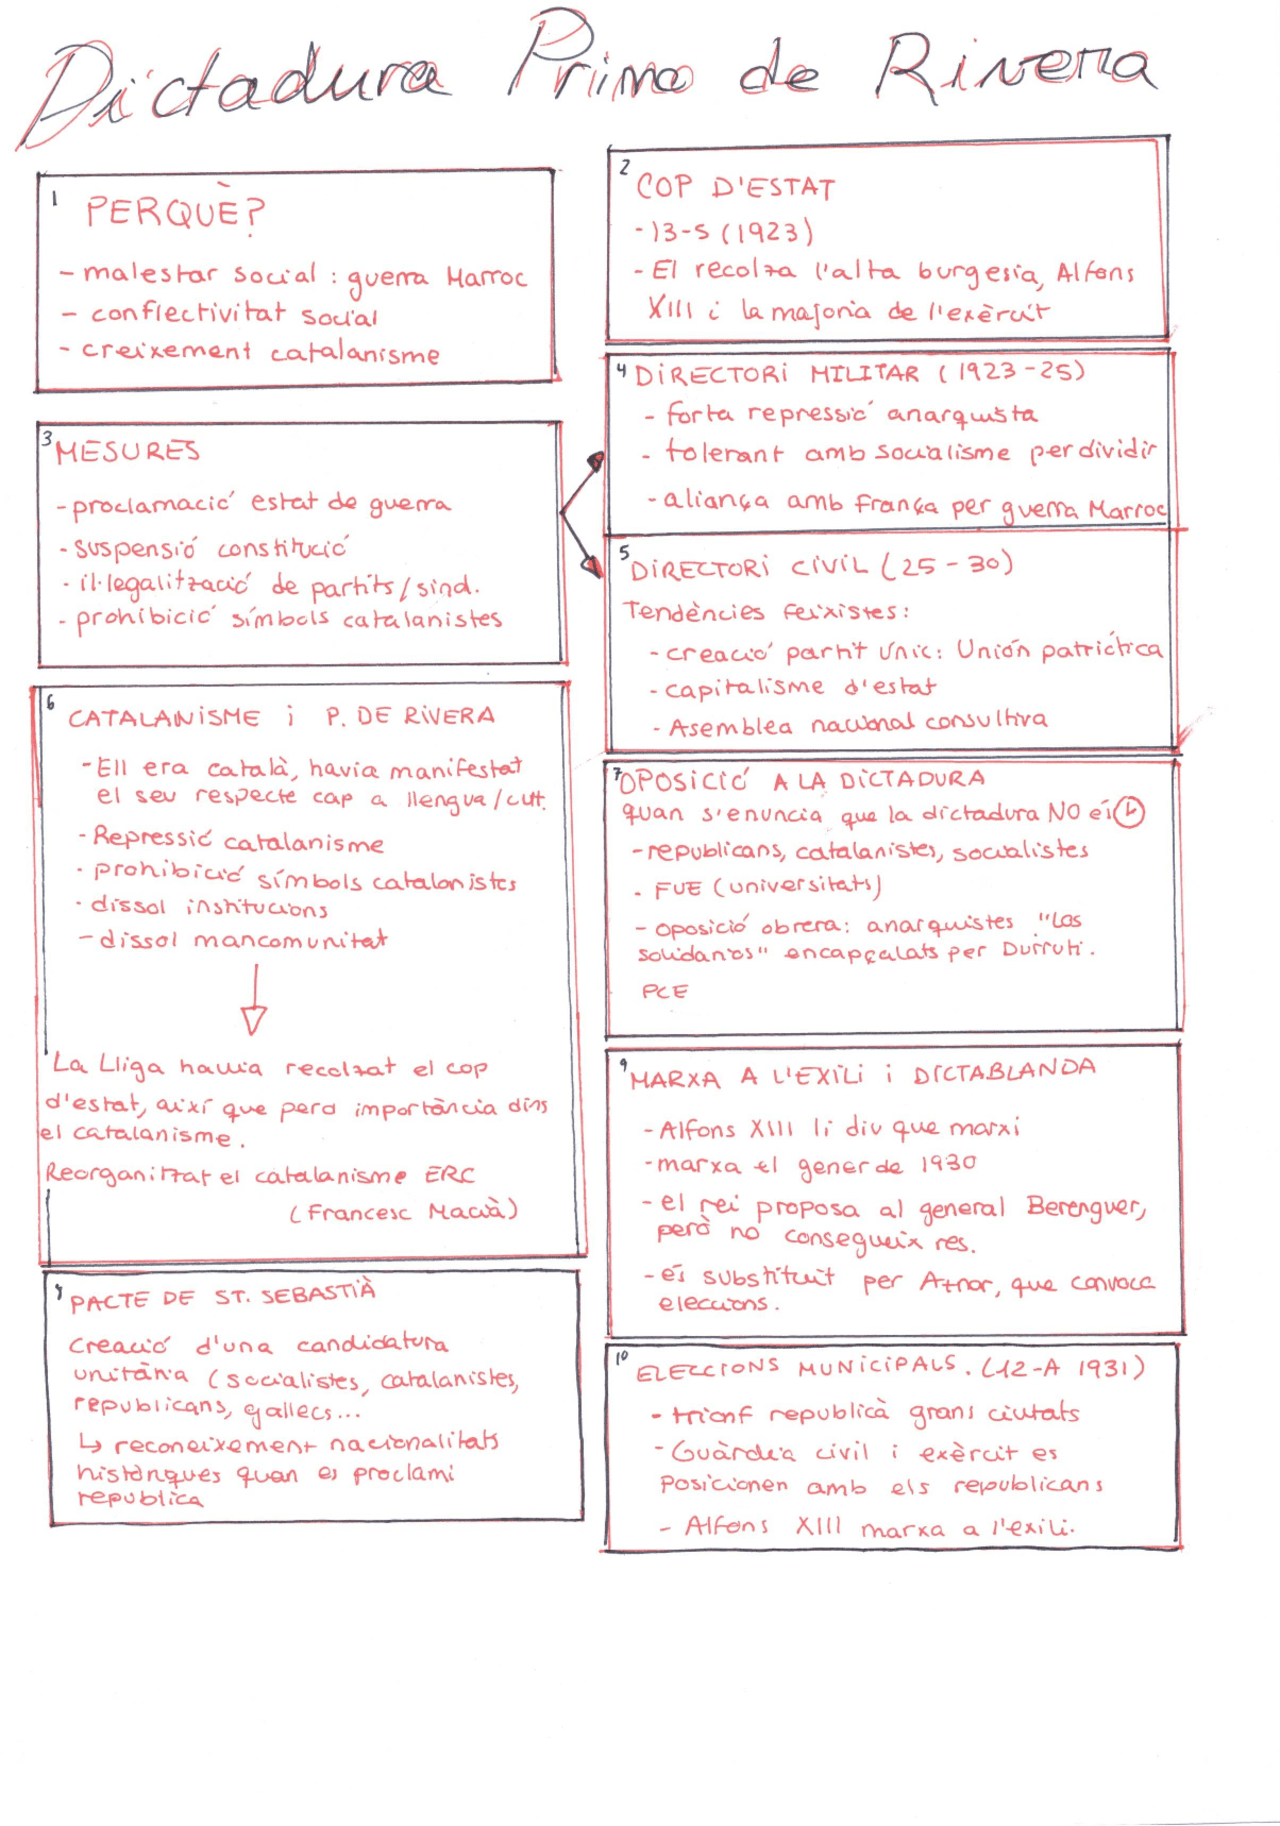 Dictadura Primo de Rivera
1 PERQUÈ?
- malestar social : guerra Marroc
- conflectivitat social
- creixement catalanisme
2 COP D'ESTAT
- 13-S (1923)
- El recolza l'alta burgesia, Alfons
XIII i la majoria de l'exèrcit
3 MESURES
- proclamació estat de guerra
- suspensió constitució
- il·legalització de partits/sind.
- prohibició símbols catalanistes
4 DIRECTORI MILITAR (1923-25)
- forta repressió anarquista
- tolerant amb socialisme per dividir
- aliança amb frança per guerra Marroc
5 DIRECTORI CIVIL (25-30)
Tendències feixistes:
- creació partit únic: Unión patriótica
- capitalisme d'estat
- Asemblea nacional consultiva
6 CATALANISME i P. DE RIVERA
- Ell era català, havia manifestat
el seu respecte cap a llengua/cult.
- Repressió catalanisme
- prohibició símbols catalanistes
- dissol institucions
- dissol mancomunitat
La Lliga havia recolzat el cop
d'estat, així que perd importància dins
el catalanisme.
Reorganitzat el catalanisme ERC
(Francesc Macià)
7 OPOSICIÓ A LA DICTADURA
quan s'enuncia que la dictadura NO és
- republicans, catalanistes, socialistes
- FUE (universitats)
- oposició obrera: anarquistes "Los
solidarios" encapçalats per Durruti.
PCE
8 PACTE DE ST. SEBASTIÀ
Creació d'una candidatura
unitària (socialistes, catalanistes,
republicans, gallecs...
↳ reconeixement nacionalitats
històriques quan es proclami
republica
9 MARXA A L'EXILI i DICTABLANDA
- Alfons XIII li diu que marxi
- marxa el gener de 1930
- el rei proposa al general Berenguer,
però no consegueix res.
- és substituït per Aznar, que convoca
eleccions.
10 ELECCIONS MUNICIPALS. (12-A 1931)
- trionf republicà grans ciutats
- Guàrdia civil i exèrcit es
posicionen amb els republicans
- Alfons XIII marxa a l'exili.